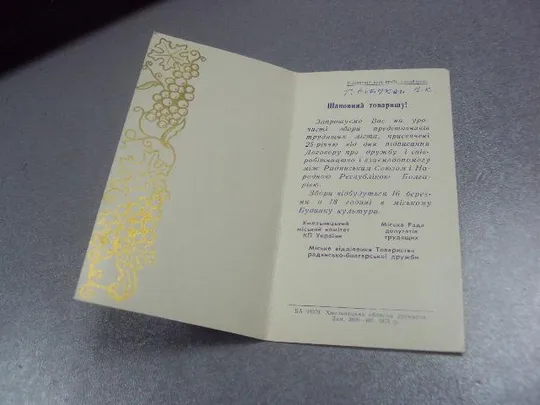 Шановний товаришу!
Запрошуємо Вас на уро-
чисті збори представників
трудящих міста, присвячені
25-річчю від дня підписання
Договору про дружбу і спів-
робітництво і взаємодопомогу
між Радянським Союзом і На-
родною Республікою Болга-
рією.
Збори відбудуться 16 берез-
ня о 18 годині в міському
Будинку культури.
Хмельницький
міський комітет
КП України
Міська Рада
депутатів
трудящих
Міське відділення Товариства
радянсько-болгарської дружби
Хмельницька обласна друкарня.